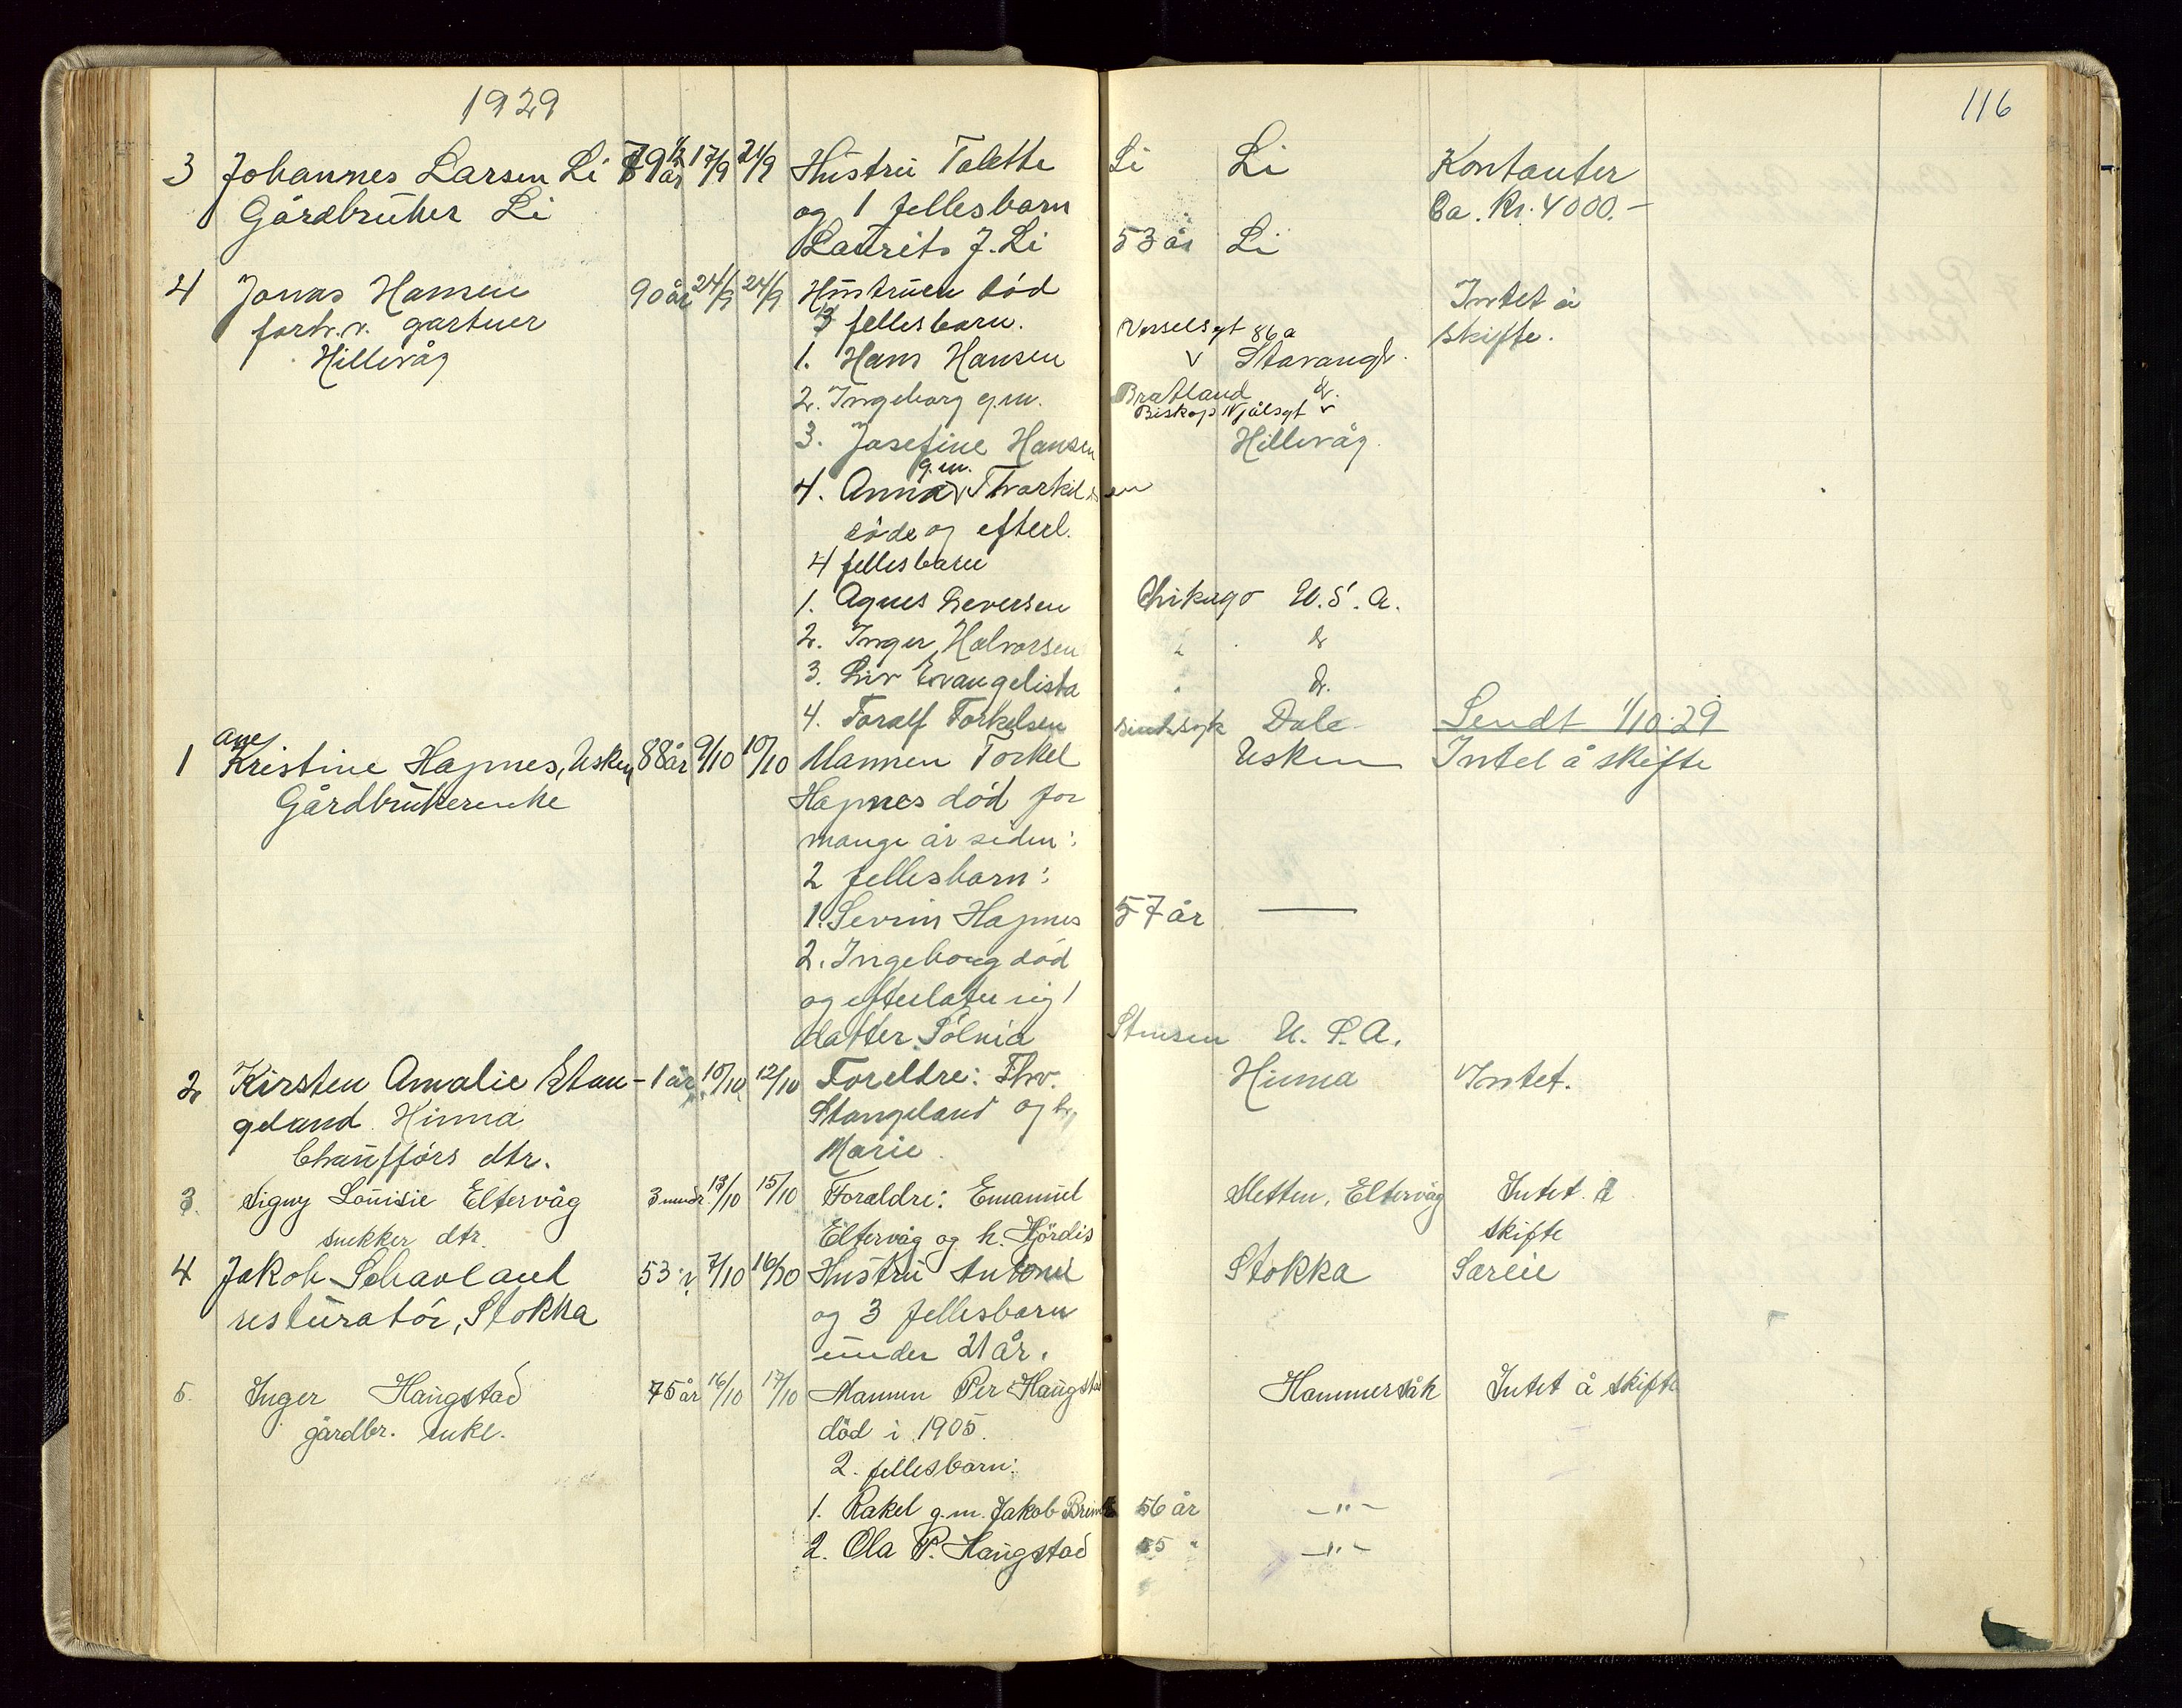 1929
116
3 Johannes Larsen Li 79 1/2 år 17/9 21/9 Hustru Talette Li Li Kontanter
Gårdbruker Li og 1 fellesbarn Ca. Kr. 4000.-
Laurits J. Li 53 år Li
4 Jonas Hansen 90 år 24/9 24/9 Hustruen død Intet å
forh.v. gartner fellesbarn. skifte.
Hillevåg 1. Hans Hansen Vesselsgt 86a Stavanger.
2. Ingeborg g.m. Bratland
Biskop Njålsgt
3. Josefine Hansen Hillevåg.
4. Anna g.m. Thorkildsen
døde og efterl.
4 fellesbarn
1. Agnes Seversen Chikago U.S.A.
2. Inger Halvorsen " d
3. Liv Evangelista " d.
4. Toralf Torkelsen sindssyk Dale Sendt 1/10 29
1 Ane Kristine Hapnes, Usken 88 år 9/10 10/10 Mannen Torkel Usken Intet å skifte
Gårdbrukerenke Hapnes død for
mange år siden:
2 fellesbarn:
1. Sevrin Hapnes 57 år —
2. Ingeborg død
og efterlater sig 1
datter Stensen U.S.A.
2 Kirsten Amalie Stan- 1 år 10/10 12/10 Foreldre: Thv. Hinna Intet.
geland Hinna Stangeland og h.
Chaufførs dtr. Marie.
3. Signy Louisie Eltervåg 3 mndr. 13/10 15/10 Foreldre: Emanuel Sletten, Eltervåg Intet å
snekker dtr. Eltervåg og h. Hjördis skifte
4 Jakob Schavland 53 7/10 16/10 Hustru Antoni Stokka Søreie
resturatör, Stokka og 3 fellesbarn
under 21 år.
5. Inger Haugstad 75 år 16/10 17/10 Mannen Per Haugstad Hommersåk Intet å skifte
gårdbr. enke. död i 1905.
2. fellesbarn:
1. Rakel g.m. Jakob 56 år -"-
2. Ola P. Haugstad 55 " -"-